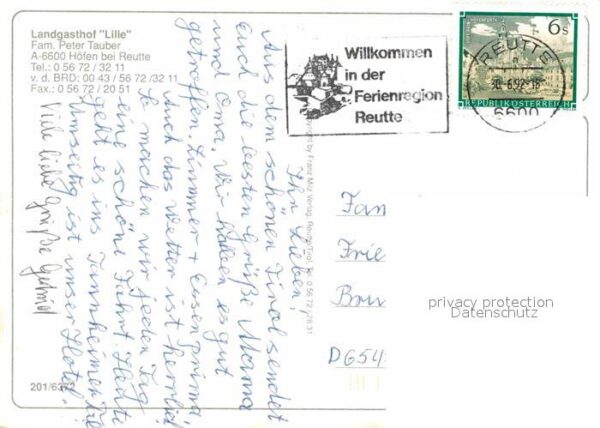 Landgasthof "Lilie"
Fam. Peter Tauber
A-6600 Höfen bei Reutte
Tel.: 0 56 72 / 32 11
v. d. BRD: 00 43 / 56 72 /32 11
Fax.: 0 56 72 / 20 51
Willkommen
in der
Ferienregion
Reutte
6 s
REPUBLIK ÖSTERREICH
REUTTE
6600
Ihr Lieben,
Aus dem schönen Tirol sendet
Euch die besten Grüße Mama
und Oma. Wir haben es gut
getroffen, Zimmer + Essen prima
Auch das Wetter ist herrlich
So machen wir jeden Tag
eine schöne Fahrt. Heute
geht es ins Tannheimer Tal
Umseitig ist unser Hotel.
Viele liebe Grüße
Fam
Frie
Bru
D 654
privacy protection
Datenschutz
201/6372